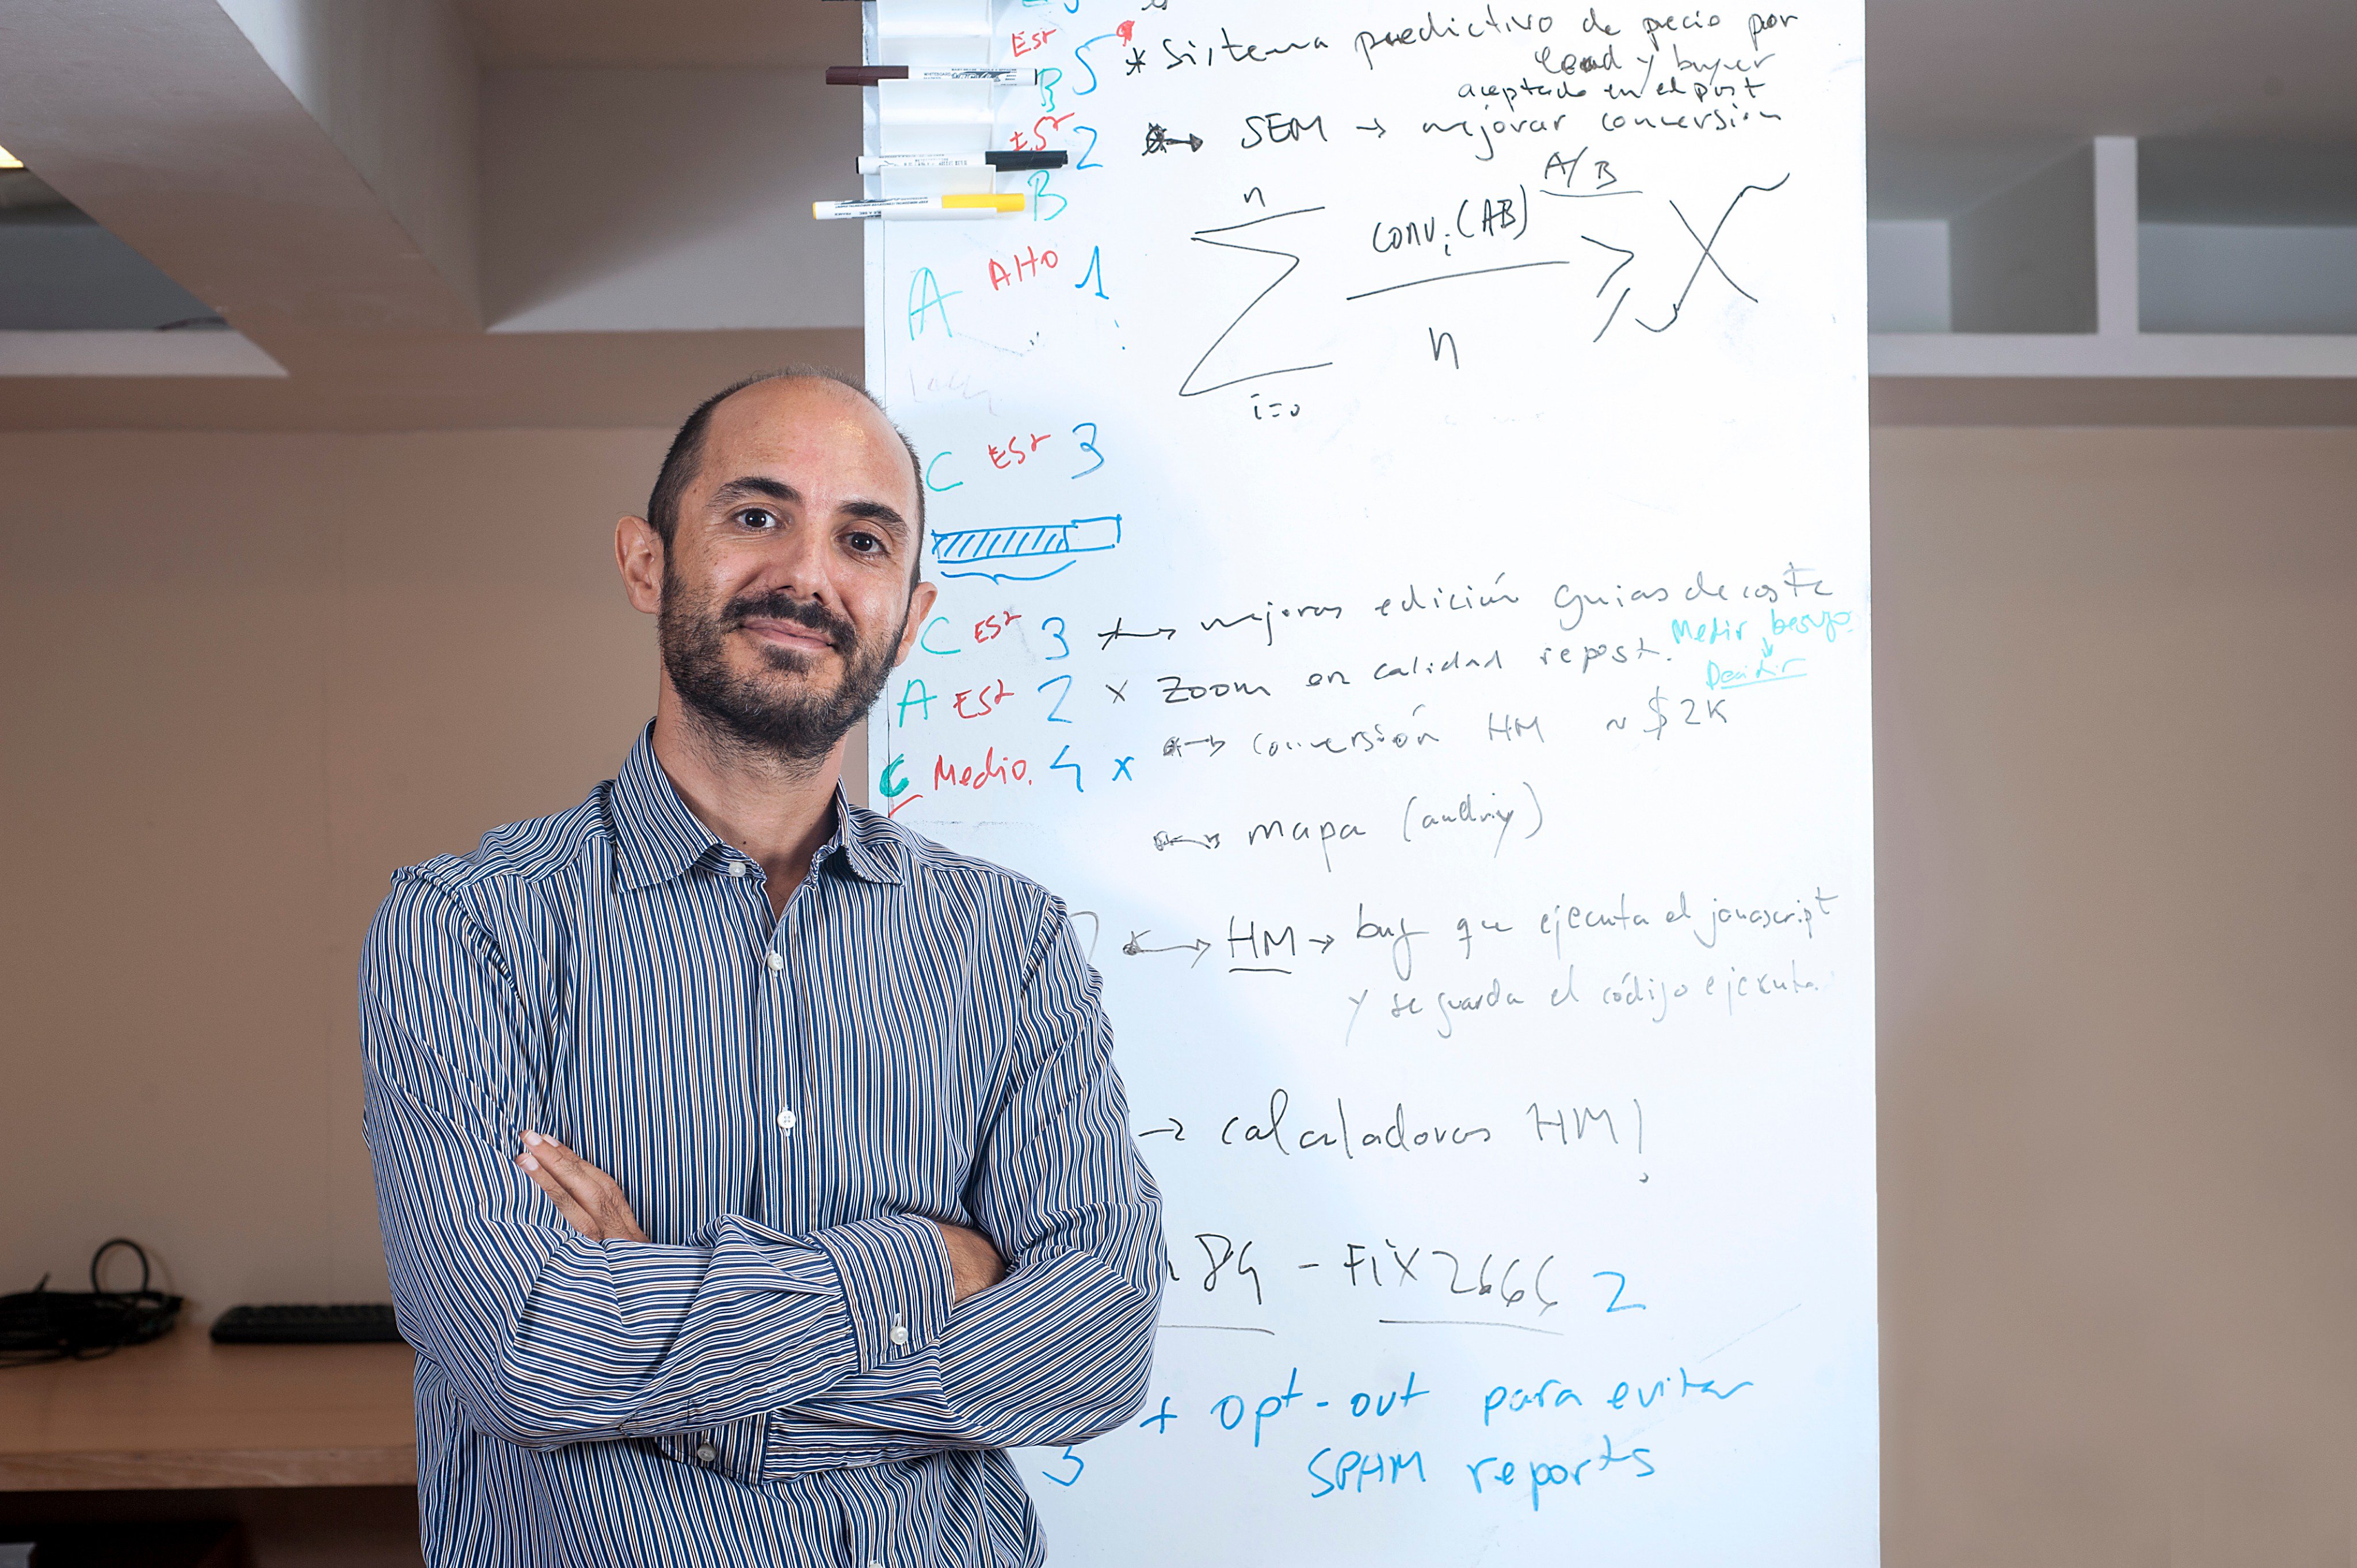 Est
B 5 * Sistema predictivo de precio por
lead y buyer
aceptado en el post
Est 2 → SEM → mejorar conversión
B
A/B
n
Σ conv.i (AB) ≥ X
n
i=0
A Alto 1
C Est 3
C Est 3 → mejoras edición guias de coste
A Est 2 x Zoom en calidad repost. Medir
Decidir
C Medio. 4 x → conversión HM ~ $2K
→ mapa (andriy)
→ HM → bug que ejecuta el javascript
y se guarda el código ejecuta.
→ calculadoras HM!
84 - Fix 2666 2
+ opt-out para evitar
3 SPAM reports